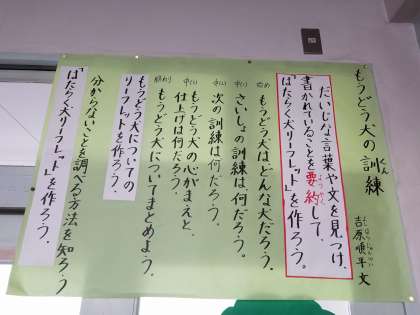 もうどう犬の訓練
くん
れん
吉原順平 文
よしはらじゅんぺい
だいじな言葉や文を見つけ、
書かれていることを要約して、
ようやく
「はたらく犬リーフレット」を作ろう。
始め もうどう犬はどんな犬だろう。
中(1) さいしょの訓練は何だろう。
中(2) 次の訓練は何だろう。
中(3) もうどう犬の心がまえと、
仕上げは何だろう。
終わり もうどう犬についてまとめよう。
もうどう犬についての
リーフレットを作ろう。
分からないことを調べる方法を知ろう
「はたらく犬リーフレット」を作ろう。